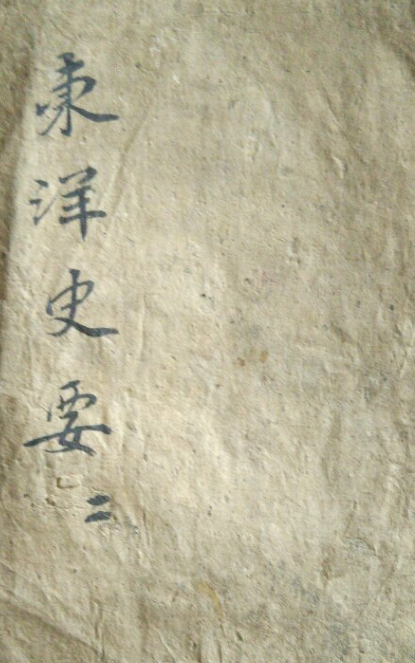 東洋史要二